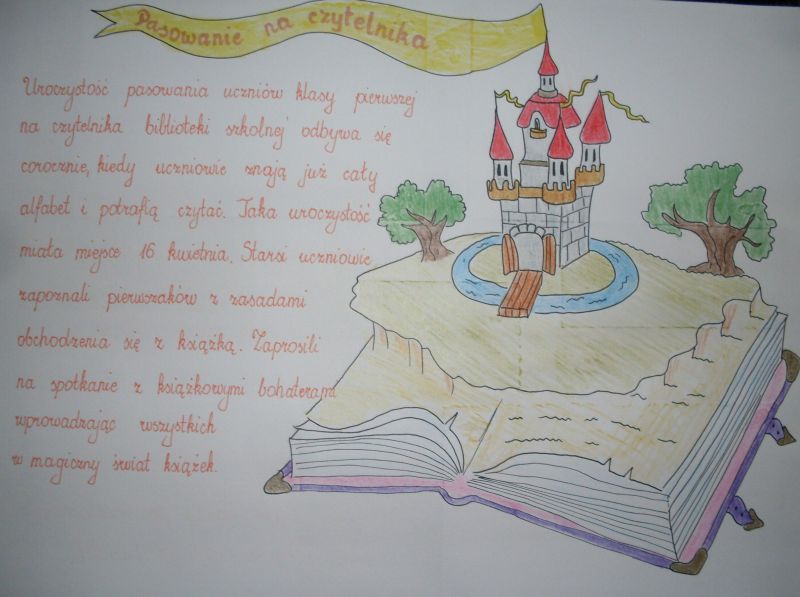 Pasowanie na czytelnika
Uroczystość pasowania uczniów klasy pierwszej
na czytelnika biblioteki szkolnej odbywa się
corocznie, kiedy uczniowie znają już cały
alfabet i potrafią czytać. Taka uroczystość
miała miejsce 16 kwietnia. Starsi uczniowie
zapoznali pierwszaków z zasadami
obchodzenia się z książką. Zaprosili
na spotkanie z książkowymi bohaterami
wprowadzając wszystkich
w magiczny świat książek.